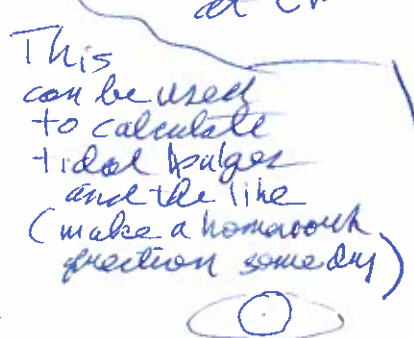 at CM
This
can be used
to calculate
tidal bulges
and the like
(make a homework
question someday)